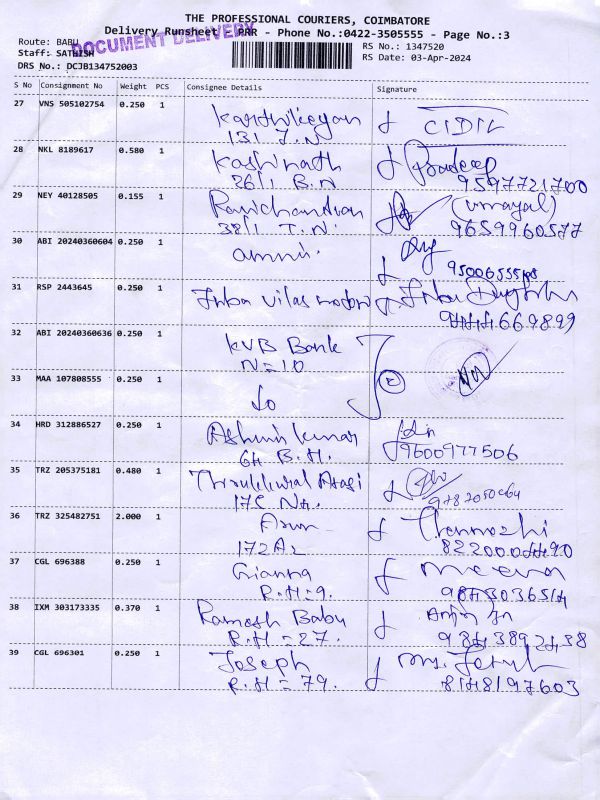 THE PROFESSIONAL COURIERS, COIMBATORE
Delivery Runsheet PRR - Phone No.:0422-3505555 - Page No.:3
DOCUMENT DELIVERY
Route: BABU
RS No.: 1347520
Staff: SATHISH
RS Date: 03-Apr-2024
DRS No.: DCJB134752003
S No Consignment No Weight PCS Consignee Details Signature
27 VNS 505102754 0.250 1 Karthikeyan
131 J.N
28 NKL 8189617 0.580 1 Kashinath Pradeep
26/1 B.N 9597721700
29 NEY 40128505 0.155 1 Ravichandran (Umayal)
38/1 T.N. 9659960577
30 ABI 20240360604 0.250 1
31 RSP 2443645 0.250 1 Inba vilas
9444669899
32 ABI 20240360636 0.250 1 KVB Bank
N=10
33 MAA 107808555 0.250 1
34 HRD 312886527 0.250 1 Ashwin Kumar
64 B.H. 9600977506
35 TRZ 205375181 0.480 1 Thirukkural Arasi
17C N4.
36 TRZ 325482751 2.000 1 Arun Thenmozhi
172A2 8220004490
37 CGL 696388 0.250 1 Gianna Meena
R.H=9. 9843036514
38 IXM 303173335 0.370 1 Ramesh Babu
R.H=27. 9843892438
39 CGL 696301 0.250 1 Joseph Mrs.
R.H=79. 8148197603